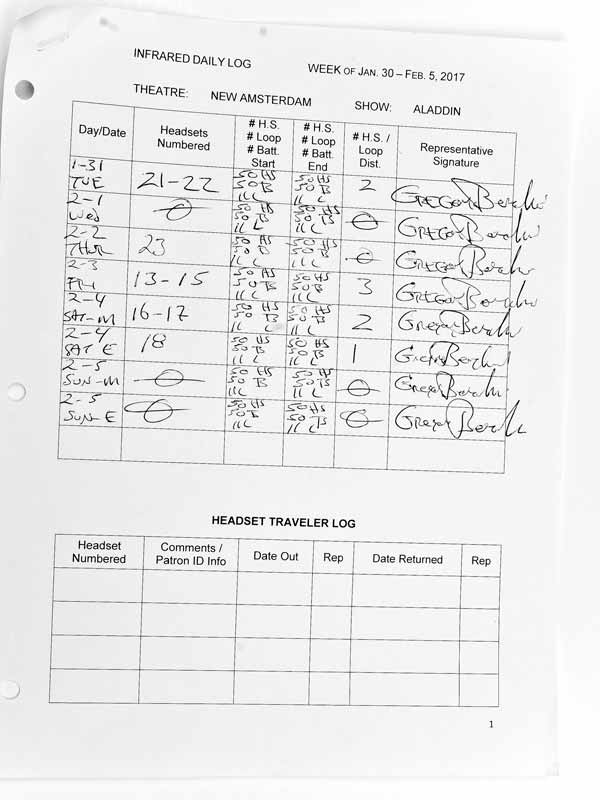 INFRARED DAILY LOG WEEK OF JAN. 30 – FEB. 5, 2017
THEATRE: NEW AMSTERDAM SHOW: ALADDIN
Day/Date
Headsets
Numbered
# H.S.
# Loop
# Batt.
Start
# H.S.
# Loop
# Batt.
End
# H.S. /
Loop
Dist.
Representative
Signature
1-31
TUE
21-22
50 HS
50 B
11 L
50 HS
50 B
11 L
2
2-1
WED
50 HS
50 B
11 L
50 HS
50 B
11 L
2-2
THUR
23
50 HS
50 B
11 L
50 HS
50 B
11 L
2-3
FRI
13-15
50 HS
50 B
11 L
50 HS
50 B
11 L
3
2-4
SAT-M
16-17
50 HS
50 B
11 L
50 HS
50 B
11 L
2
2-4
SAT E
18
50 HS
50 B
11 L
50 HS
50 B
11 L
1
2-5
SUN-M
50 HS
50 B
11 L
50 HS
50 B
11 L
2-5
SUN-E
50 HS
50 B
11 L
50 HS
50 B
11 L
HEADSET TRAVELER LOG
Headset
Numbered
Comments /
Patron ID Info
Date Out
Rep
Date Returned
Rep
1